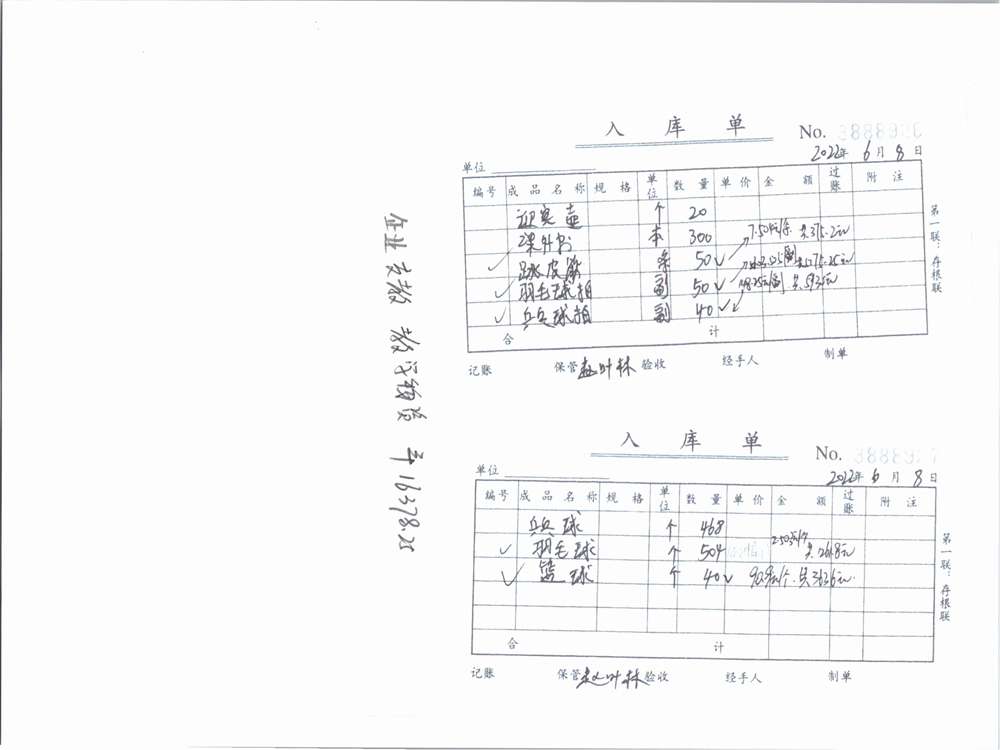 入 库 单
No.
2022年 6月 8日
单位
编号 成品名称 规格 单位 数量 单价 金额 过账 附注
迎宾壶 个 20
课外书 本 300
跳皮筋 条 50 7.504元/条 共375.2元
羽毛球拍 副 50
乒乓球拍 副 40 共5936元
合 计
第一联：存根联
记账 保管 赵叶林 验收 经手人 制单
企业支教 教学物资 16378.25
入 库 单
No.
2022年 6月 8日
单位
编号 成品名称 规格 单位 数量 单价 金额 过账 附注
乒乓球 个 468
羽毛球 个 504
篮球 个 40 90.9元/个 共3636元
合 计
第一联：存根联
记账 保管 赵叶林 验收 经手人 制单